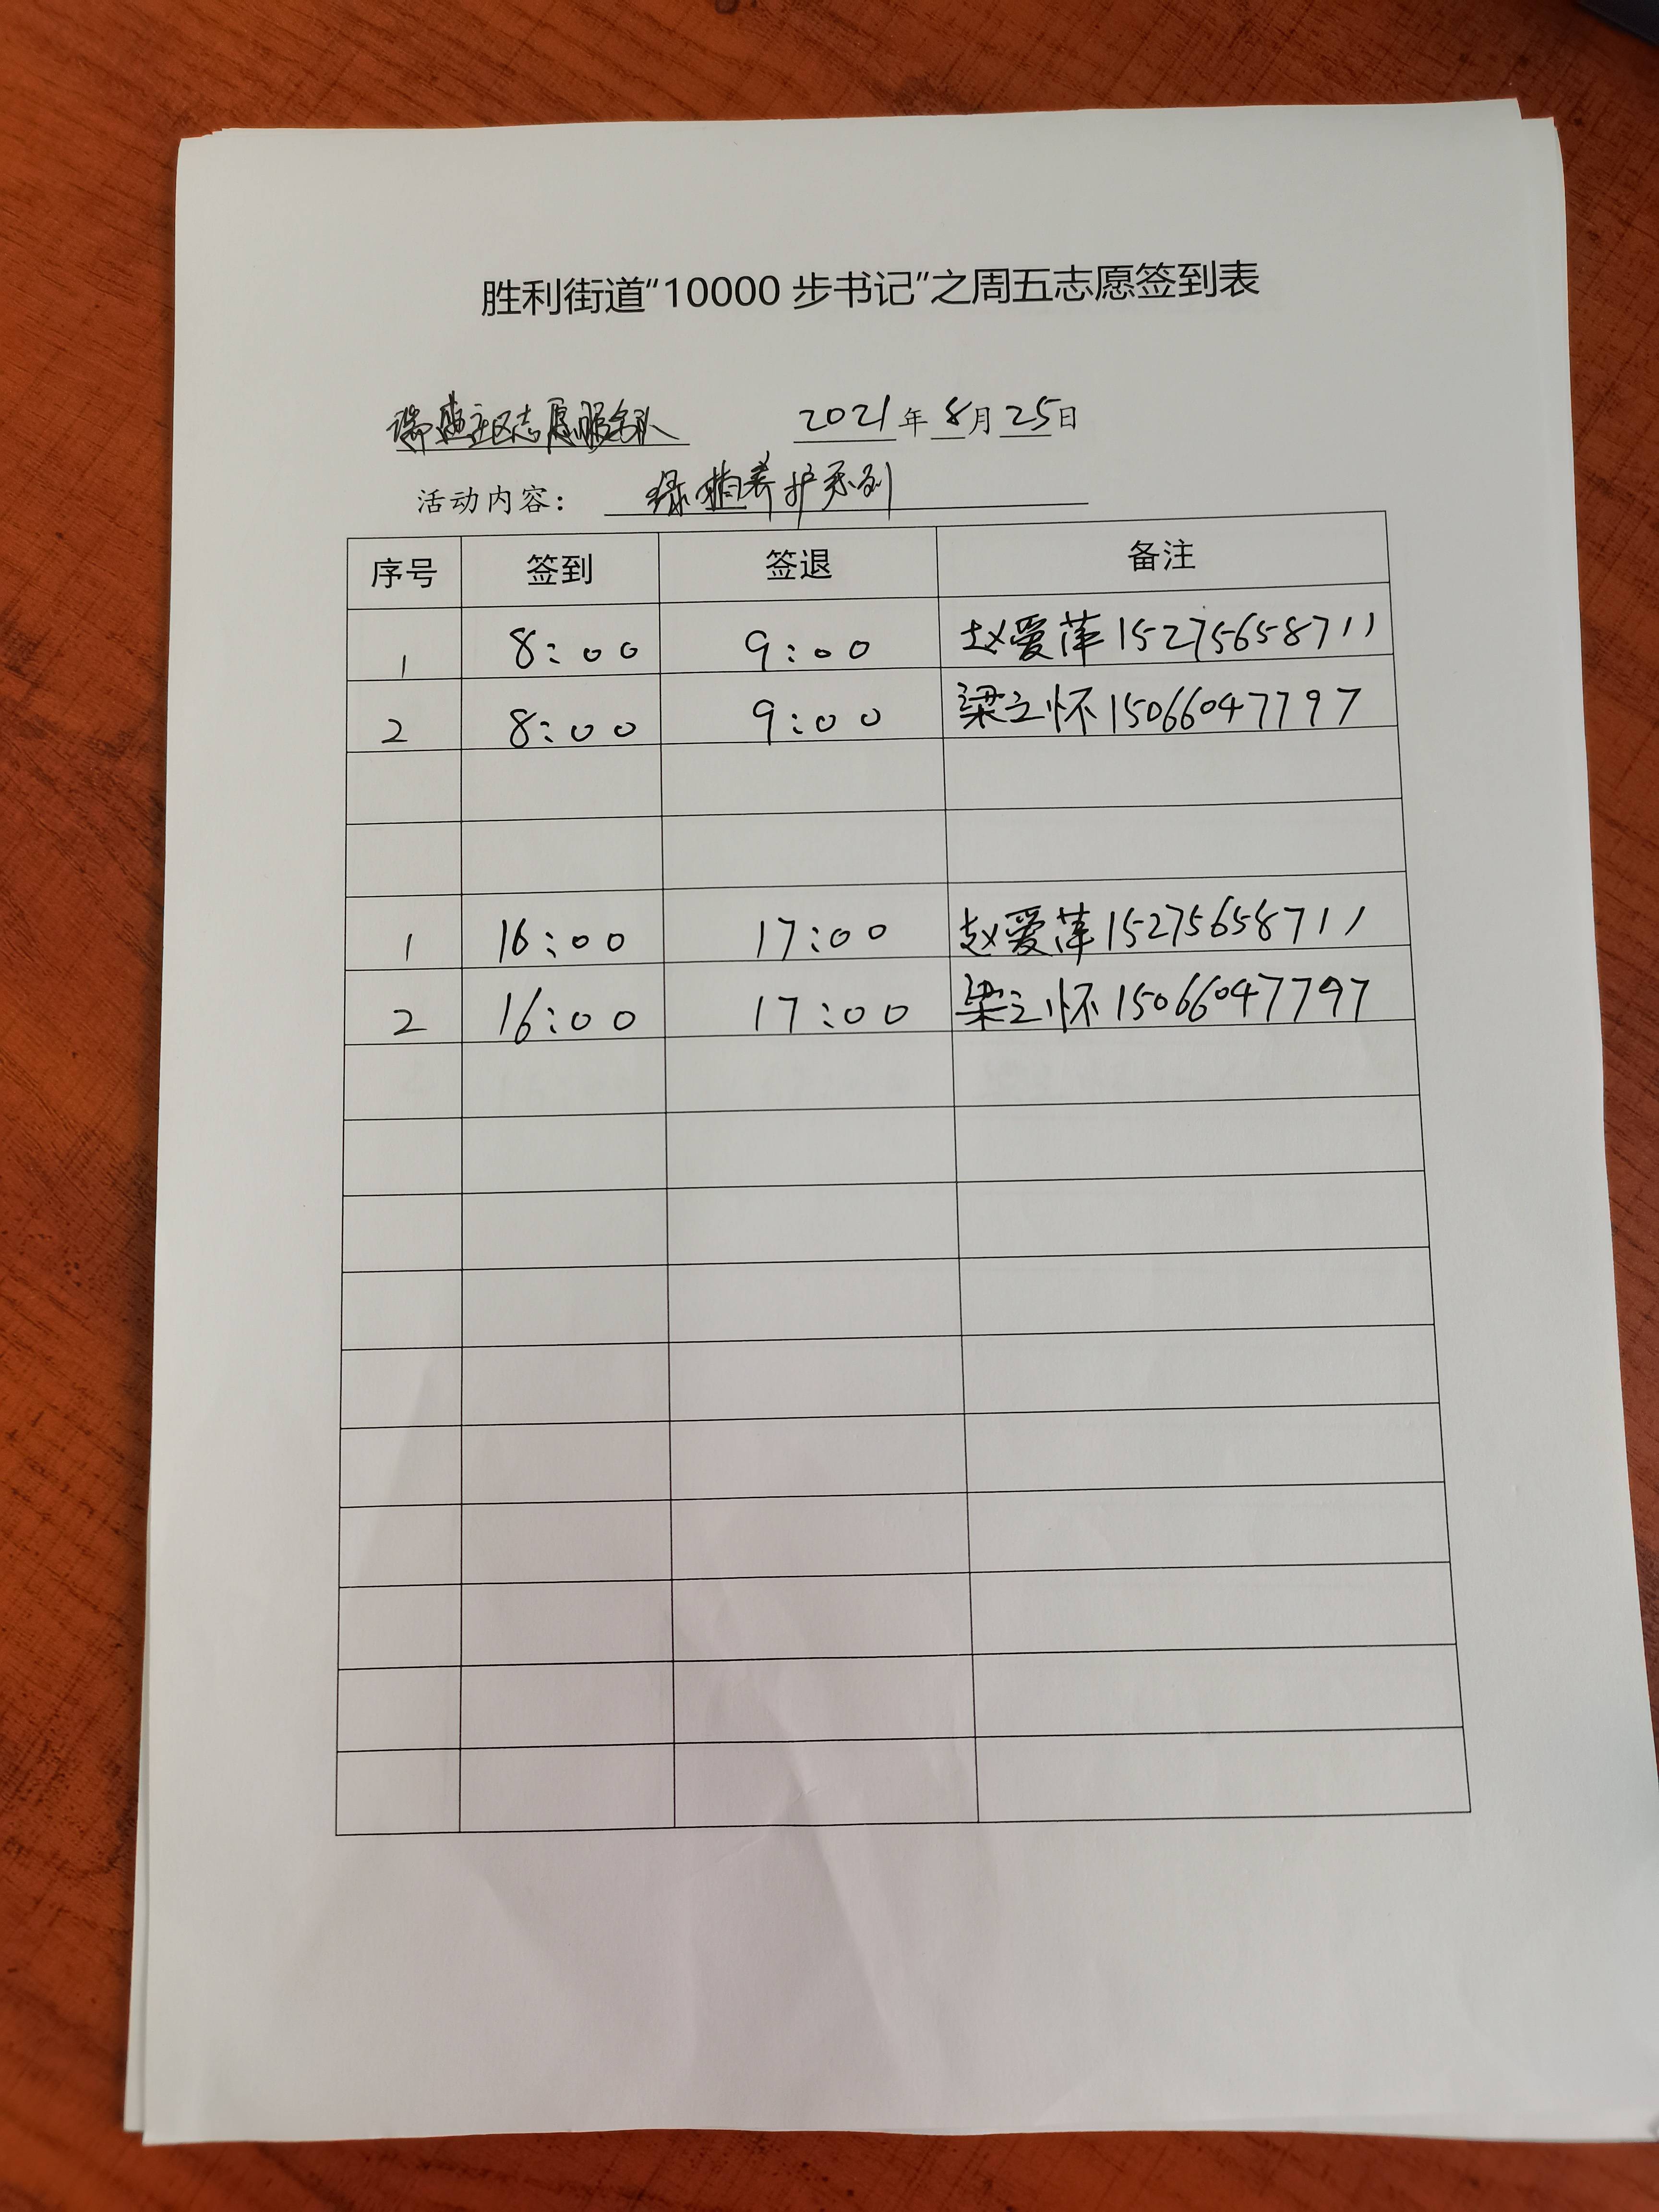 胜利街道“10000 步书记”之周五志愿签到表
社区志愿服务队 2021年8月25日
活动内容： 绿植养护系列
序号 签到 签退 备注
1 8:00 9:00 赵爱萍 15275658711
2 8:00 9:00 梁立怀 15066047797
1 16:00 17:00 赵爱萍 15275658711
2 16:00 17:00 梁立怀 15066047797